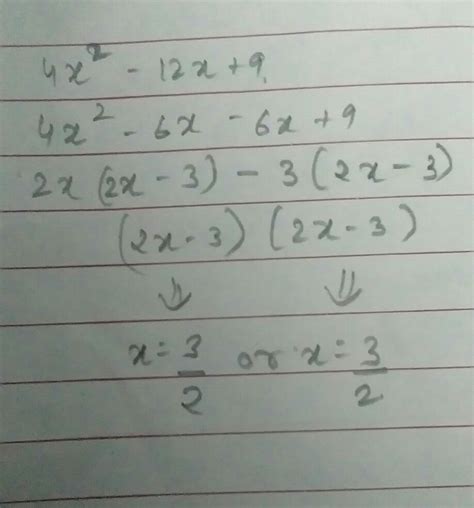 4x² - 12x + 9.
4x² - 6x - 6x + 9
2x (2x - 3) - 3 (2x - 3)
(2x - 3) (2x - 3)
⇓ ⇓
x = 3/2 or x = 3/2